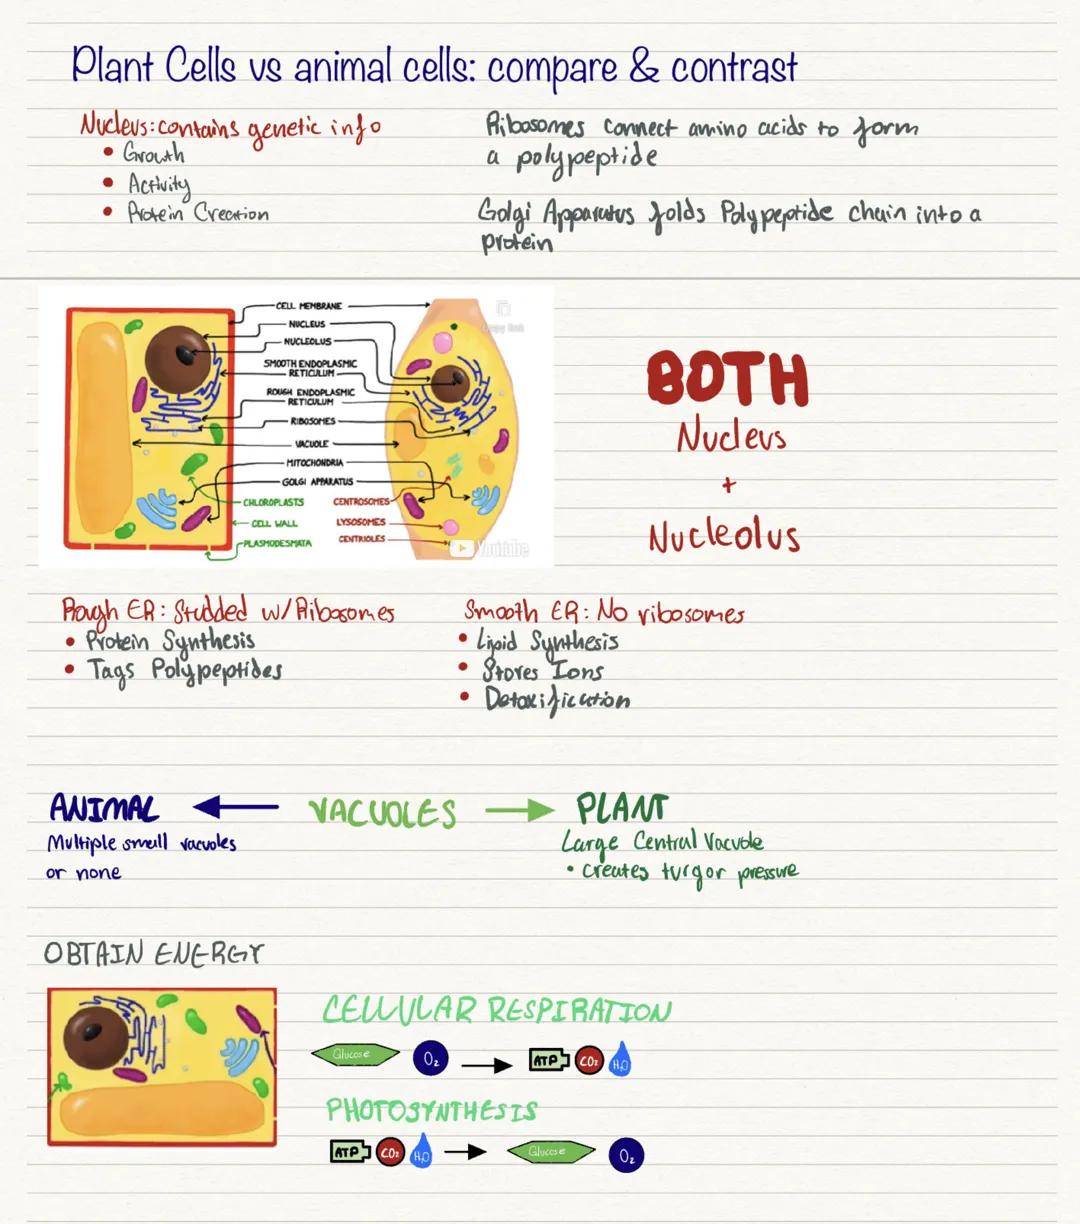 Plant Cells vs animal cells: compare & contrast
Nucleus: contains genetic info
• Growth
• Activity
• Protein Creation
Ribosomes connect amino acids to form
a polypeptide
Golgi Apparatus folds Polypeptide chain into a
protein
CELL MEMBRANE
NUCLEUS
NUCLEOLUS
SMOOTH ENDOPLASMIC
RETICULUM
ROUGH ENDOPLASMIC
RETICULUM
RIBOSOMES
VACUOLE
MITOCHONDRIA
GOLGI APPARATUS
CHLOROPLASTS
CELL WALL
PLASMODESMATA
CENTROSOMES
LYSOSOMES
CENTRIOLES
Copy link
YouTube
BOTH
Nucleus
+
Nucleolus
Rough ER: Studded w/Ribosomes
• Protein Synthesis
• Tags Polypeptides
Smooth ER: No ribosomes
• Lipid Synthesis
• Stores Ions
• Detoxification
ANIMAL
Multiple small vacuoles
or none
VACUOLES
PLANT
Large Central Vacuole
• Creates turgor pressure
OBTAIN ENERGY
CELLULAR RESPIRATION
Glucose O₂ ATP CO₂ H₂O
PHOTOSYNTHESIS
ATP CO₂ H₂O Glucose O₂